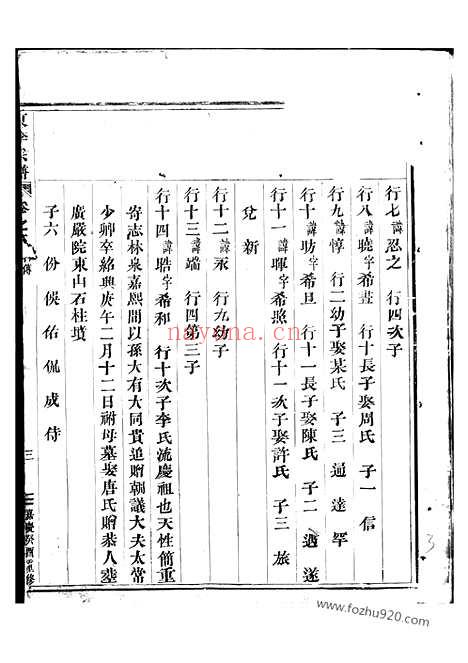 行七 諱忍之 行四次子
行八 諱曉字希晝 行十長子娶周氏 子一 信
行九 諱惇 行二幼子娶某氏 子三 通 達 罕
行十 諱昉字希旦 行十一長子娶陳氏 子二 遇 遂
行十一 諱暉字希照 行十一次子娶許氏 子三 旅
兌 新
行十二 諱永 行九幼子
行十三 諱端 行四第三子
行十四 諱晧字希和 行十次子李氏流慶祖也天性簡重
寄志林泉嘉熙間以孫大有大同貴追贈朝議大夫太常
少卿卒紹興庚午二月十二日祔母墓娶唐氏贈恭人塟
廣嚴院東山石柱墳
子六 份 俣 佑 侃 成 侍
宗譜 卷之 傳
三
嘉慶癸酉重修
3
nayona.cn
www.fozhu920.com